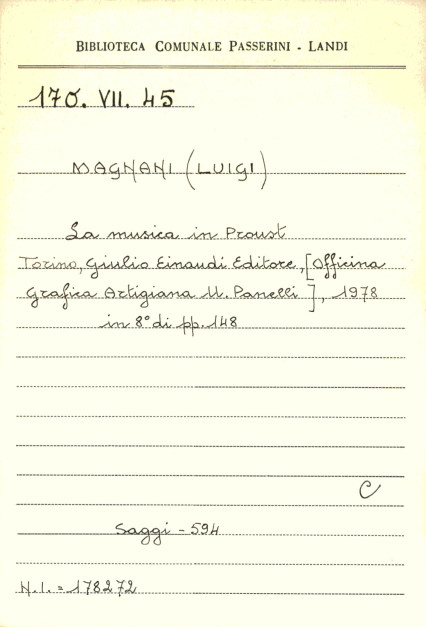 BIBLIOTECA COMUNALE PASSERINI - LANDI
170. VII. 45
MAGNANI (LUIGI)
La musica in Proust
Torino, Giulio Einaudi Editore, [Officina
Grafica Artigiana U. Panelli], 1978
in 8° di pp. 148
C
Saggi - 594
N.I. = 178272